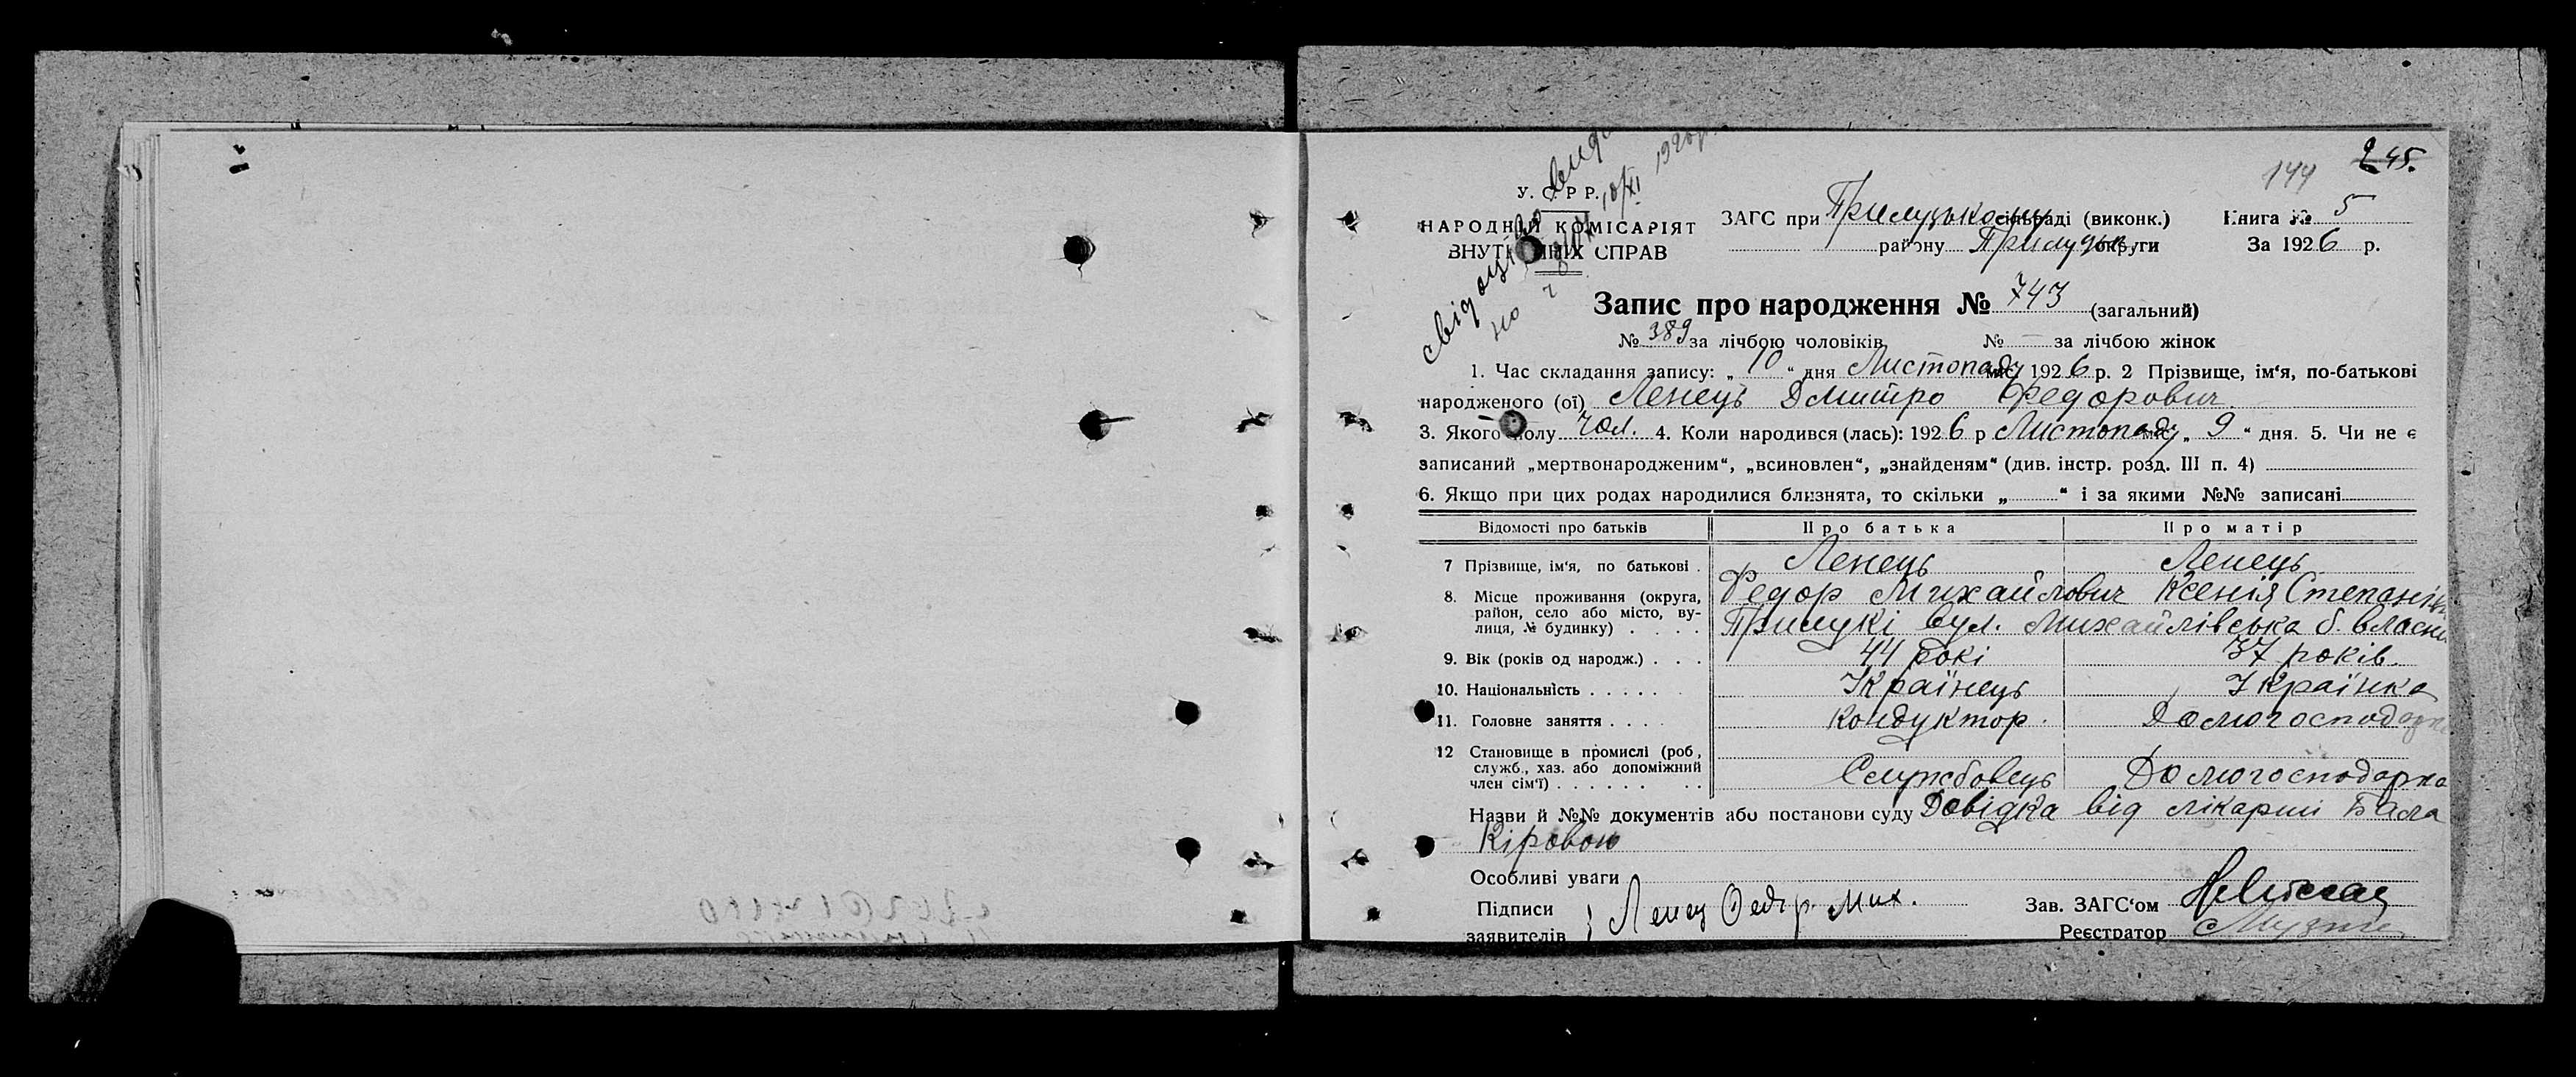 245.
144
У. С. Р Р.
НАРОДНІЙ КОМІСАРІЯТ
ВНУТРІШНІХ СПРАВ
свідоцтво
10/XI 1926 р.
ЗАГС при Прилуцькому сільраді (виконк.) Книга № 5
району Прилуцьк. округи За 1926 р.
Запис про народження № 743 (загальний)
№ 389 за лічбою чоловіків № — за лічбою жінок
1. Час складання запису: „ 10 “ дня Листопаду міс. 1926 р. 2 Прізвище, ім‘я, по-батькові
народженого (ої) Ленець Дмитро Федорович
3. Якого полу чол. 4. Коли народився (лась): 1926 р Листопаду міс. „ 9 “ дня. 5. Чи не є
записаний „мертвонародженим“, „всиновлен“, „знайденям“ (див. інстр. розд. III п. 4)
6. Якщо при цих родах народилися близнята, то скільки „ “ і за якими №№ записані
Відомості про батьків Про батька Про матір
7 Прізвище, ім‘я, по батькові . Ленець Ленець
Федор Михайлович Ксенія Степанів
8. Місце проживання (округа,
район, село або місто, ву-
лиця, № будинку) . . . . Прилукі вул. Михайлівська б. власн
9. Вік (років од народж.) . . . 44 рокі 37 років.
10. Національність . . . . . . Українець Українка
11. Головне заняття . . . . Кондуктор. Домогосподарка
12 Становище в промислі (роб,
служб., хаз. або допоміжний
член сім‘ї) . . . . . . . . Службовець Домогосподарка
Назви й №№ документів або постанови суду Довідка від лікарші Бала
Кіровою
Особливі уваги
Підписи
заявителів } Ленец Федор. Мих.
Зав. ЗАГС‘ом
Реєстратор